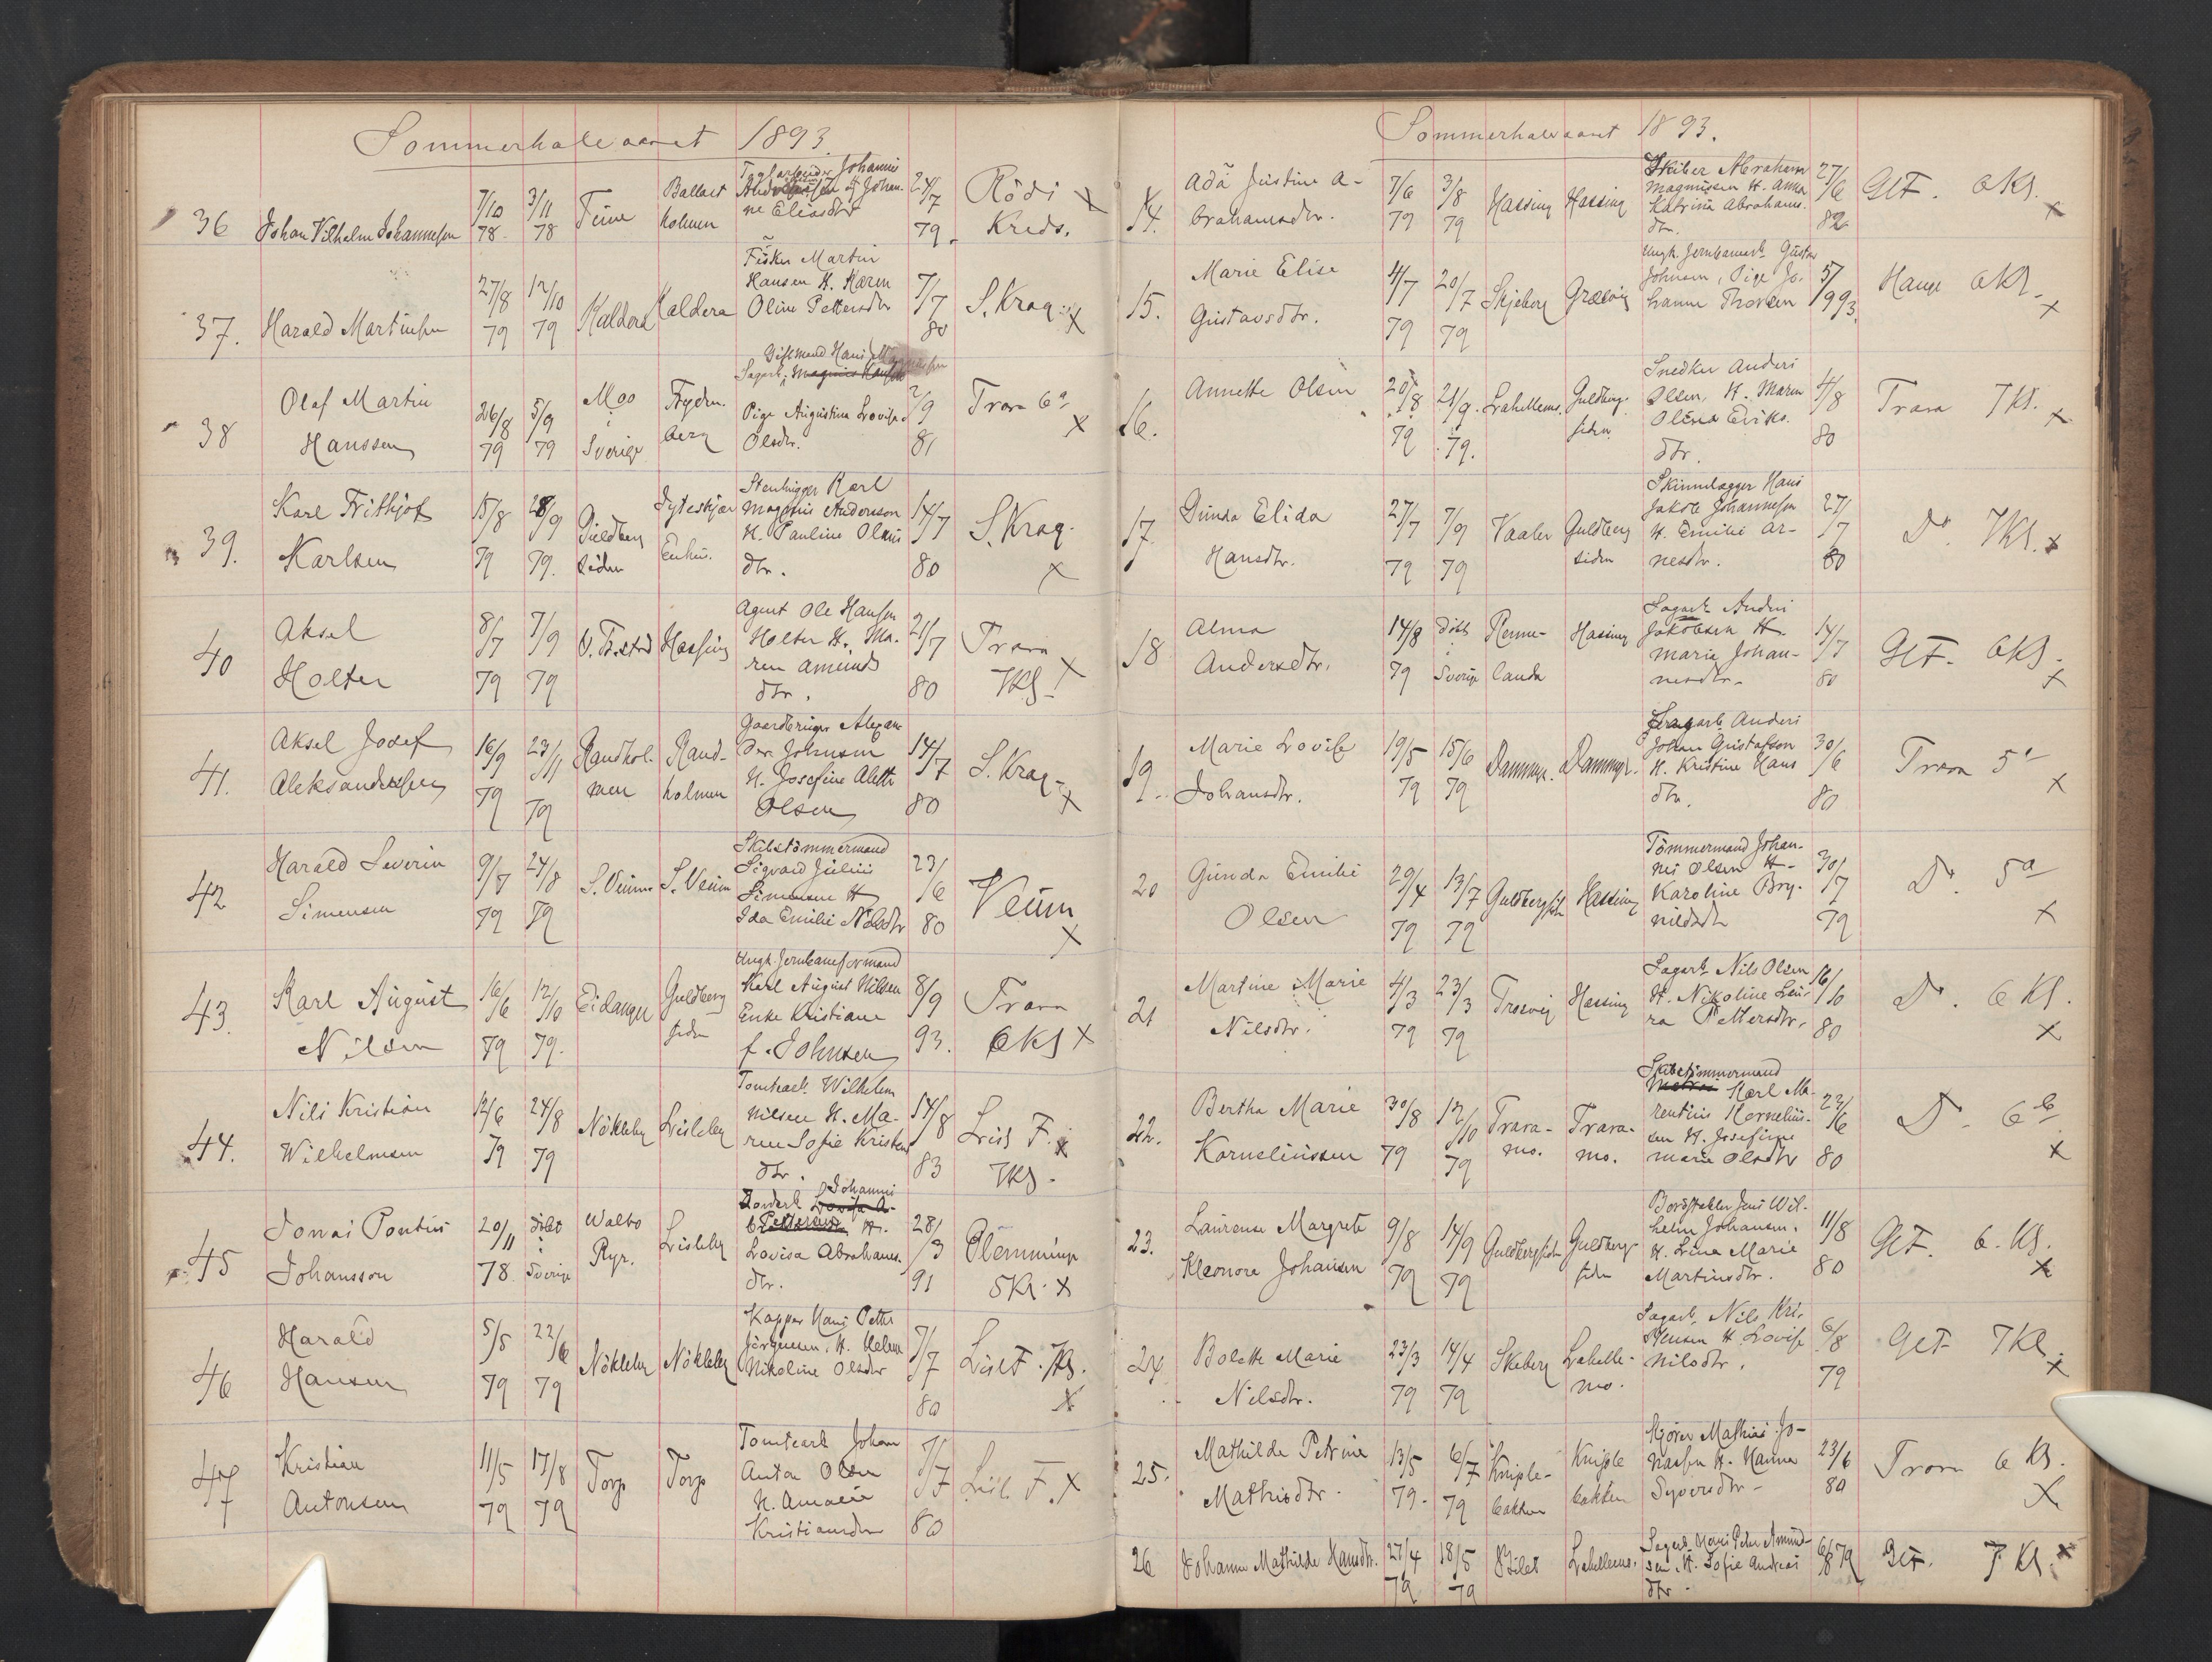 Sommerhalvaaret 1893.
36 Johan Vilhelm Johannessen 7/10 78 3/11 78 Ballast holmen Johannes ne Eliasdtr 24/7 79 Rödi Kreds. X
37. Harald Martinsen 27/8 79 12/10 79 Kaldera Kaldera Fisker Martin
Hansen H. Karen
Oline Pettersdtr 7/7 80 S. Krag. X
38 Olaf Martin
Hanssen 26/8 79 5/9 79 Mos i Sverige Frydenberg Hans
Pige Augustina Lovisa
Olsdtr. 2/9 81 Trara 6a X
39. Karl Frithjof
Karlsen 15/8 79 28/9 79. Guldberg siden Stenhugger Karl
Magnus Andersson
H. Pauline Olaus
dtr. 14/7 80 S. Krag. X
40 Aksel
Holter 8/7 79 7/9 79 Hassing Agent Ole Hansen
Holter H. Ma-
ren Amunds
dtr. 21/7 80 Trara 7Kl. X
41. Aksel Josef
Aleksandersen 16/9 79 23/11 79 Randholmen Randholmen Gaardbruger Alexan
der Johnsen
H. Josefine Alette
Olsen 14/7 80 S. Krag. X
42 Harald Severin
Simensen 9/7 79 24/8 79 S. Veum S. Veum Skibstömmermand
Sigvard Julius
Simensen H
Ida Emilie Nilsdtr 23/6 80 Veum X
43. Karl August
Nilsen 16/6 79 12/10 79. Eidanger Guldberg siden Ungk. Jernbaneformand
Karl August Nilsen
Enke Kristiane
f. Johnsen 8/9 93. Trara 6Kl X
44. Nils Kristian
Wilhelmsen 12/6 79 24/8 79 Nökleby Lisleby Tomtearb. Wilhelm
Nilsen H. Ma-
ren Sofie Kristens
dtr. 14/8 83 Lisl F. X 7Kl.
45 Jonas Pontus
Johansson 20/11 78 döbt i Sverige Walbo Ryr. Lisleby Johannes
H.
Lovisa Abrahams-
dtr. 28/3 91 Glemminge 5Kl. X
46 Harald
Hansen 5/5 79 22/6 79 Nökleby Nökleby Hans Petter
Jörgensen, H. Helene
Nikoline Olsdtr 7/7 80 Lisl F. 7Kl. X
47 Kristian
Antonsen 11/5 79 17/8 79 Torp Torp Tomtearb Johan
Anton Olsen
H. Amalie
Kristiansdtr 7/7 80 Lisl. F. X
Sommerhalvaaret 1893.
14. Ada Justine A-
brahamsdtr. 7/6 79 3/8 79 Hassing Hassing Skiber Abraham
Magnussen H. Anna
Katrina Abrahams.
dtr. 27/6 82 Gl F. 6Kl. X
15. Marie Elise
Gustavsdtr. 4/7 79 20/7 79 Skjeberg Græsvig Gustav
Johnsen, Pige Jo-
hanne Thorsen 5/9 93. Hauge 6Kl. X
16. Annette Olsen 20/8 79 21/9 79. Lahellemo. Guldbergsiden Snedker Anders
Olsen, H. Maren
Olina Eriks.
dtr. 4/8 80 Trara 7Kl. X
17. Gunda Elida
Hansdtr. 27/7 79 7/9 79 Vaaler Guldberg siden Hans
Jakob Johannesen
H. Emilie Ar-
nesdtr. 27/7 80 Do. 7Kl. X
18 Alma
Andersdtr. 14/8 79 döbt i Sverige Rennelanda Hassing Sagarb. Anders
Jakobsen H.
Marie Johan-
nesdtr. 14/7 80 Gl F. 6Kl. X
19. Marie Lovise
Johansdtr. 19/5 79 15/6 79 Dammyr. Dammyr. Sagarb. Anders
Johan Gustafson
H. Kristine Hans
dtr. 30/6 80 Trara 5a X
20 Gunda Emilie
Olsen 29/4 79 13/7 79 Guldbergsiden Hassing Tömmermand Johan-
nes Olsen H-
Karoline Bry-
nildsdtr 30/7 79 Do. 5a X
21 Martine Marie
Nilsdtr. 4/3 79 23/3 79 Trosvig Hassing Sagarb. Nils Olsen
H. Nikoline Lau-
ra Pettersdtr. 16/10 80 Do. 6 Kl. X
22. Bertha Marie
Korneliussen 30/8 79 12/10 79 Traramo. Traramo. Skibstömmermand
Karl Ma-
rentius Kornelius-
sen H. Josefine
Marie Olsdtr 22/6 80 Do. 6b X
23. Laurense Margrete
Eleonore Johansen 9/8 79 14/9 79 Guldbergsiden Guldbergsiden Bordstabler Jens Wil-
helm Johansen.
H. Lina Marie
Martinsdtr. 11/8 80 Gl F. 6. Kl. X
24 Bolette Marie
Nilsdtr. 23/3 79 14/4 79 Skeberg Lahellemo. Sagarb. Nils Kri-
stensen H. Lovise
Nilsdtr. 6/8 79 Gl F 7Kl. X
25. Mathilde Petrine
Mathisdtr. 13/5 79. 6/7 79 Kniplebakken Kniple bakken Mathias Jo-
nassen H. Hanna
Syversdtr- 23/6 80 Trara 6 Kl. X
26 Johanne Mathilde Hansdtr. 27/4 79 18/5 79 Lahellemo. Sagarb. Hans Peder Amund-
sen, H. Sofie Andreas
dtr. 6/8 79 Gl F. 7 Kl. X